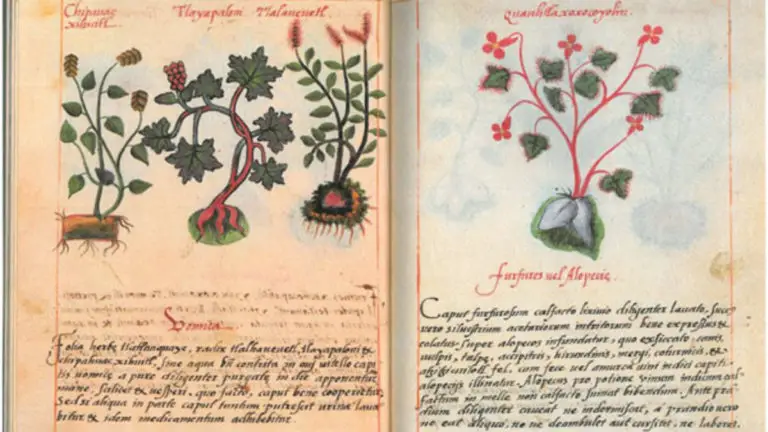 Chipauac Tlayapaloni Tlalaueuetl.
xihuitl.
Vomica.
Folia herbe tlatlanquaye, radix tlalhaueuetl, tlayapaloni &
chipahuac xihuitl, sine aqua bñ contrita in oui vitello capi
tis vomice a pure diligenter purgate in die apponentur
mane, scilicet & vesperi, quo facto, caput bene cooperietur,
Sed si aliqua in parte caput tantum putrescit urina laua
bitur & idem medicamentum adhibebitur.
Quauhtla xoxocoyolin.
furfures vel Alopecie.
Caput furfurosum calfacto lixiuio diligenter lauato, succus
vero siluestrium acetariorum intritorum bene expressus &
colatus super alopecias infundatur, quo exsiccato, canis,
vulpis, talpe, accipitris, hirundinis, mergi, coturnicis, &
fel, cum fece vel amurca vini indici capiti.
alopeciis illinatur. Alopecus pro potione vinum indicum cal
factum in melle non calfacto sumat bibendum. Ante prã
dium diligenter caueat ne indormiscat, a prandio vero
ne eat aliquo, ne deambulet aut cursitet, ne laboret.